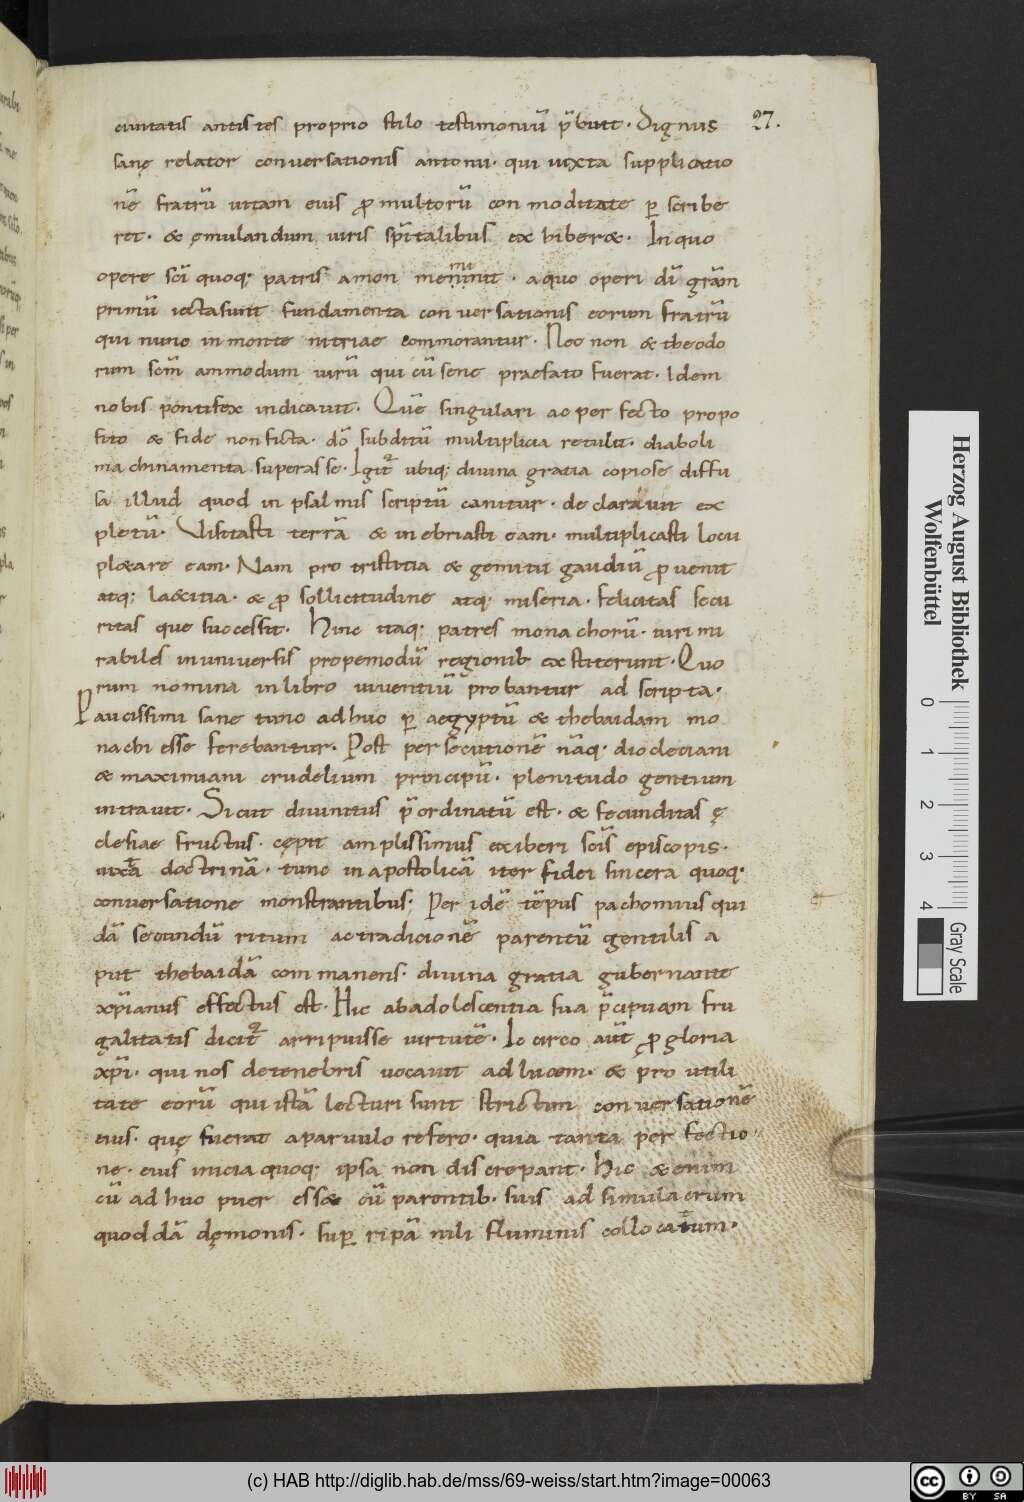 ciuitatis antistes proprio stilo testimoniū p̄buit. Dignus 27.
sanę relator conuersationis antonii. qui iuxta supplicatio
nē fratrū uitam eius ꝓ multorū conmoditate ꝑ scribe
ret. & ęmulandum uiris sp̄italibus exhiber&. In quo
opere sc̄i quoq; patris amon meminit. a quo operi dī grām
primū iecta sunt fundamenta conuersationis eorum fratrū
qui nunc in monte nitriae commorantur. Nec non & theodo
rum sc̄m ammodum uirū qui cū sene praefato fuerat. Idem
nobis pontifex indicauit. Quē singulari ac perfecto propo
sito & fide non ficta. dō subditū multiplicia retulit. diaboli
machinamenta superasse. Igit̄ ubiq; diuina gratia copiose diffu
sa illud quod in psalmis scriptū canitur. declarauit ex
pletū. Visitasti terrā & inebriasti eam. multiplicasti locu
pl&are eam. Nam pro tristitia & gemitu gaudiū ꝓuenit
atq; la&itia. & ꝓ sollicitudine atq; miseria. felicitas secu
ritas que successit. Hinc itaq; patres monachorū. uiri mi
rabiles in uniuersis propemodū regionib; exstiterunt. Quo
rum nomina in libro uiuentiū probantur adscripta.
Paucissimi sane tunc adhuc ꝑ aegyptū & thebaidam mo
nachi esse ferebantur. Post persecutionē nāq; diocleciani
& maximiani crudelium principū. plenitudo gentium
intrauit. Sicut diuinitus p̄ordinatū est. & fecunditas ę
clesiae fructus. cępit amplissimus exiberi sc̄is episcopis.
iuxtā doctrinā. tunc in apostolicā iter fidei sincera quoq;
conuersatione monstrantibus. Per idē tēpus pachomius qui
dā secundū ritum ac tradicionē parentū gentilis a
put thebaidā commanens. diuina gratia gubernante
xp̄ianus effectus est. Hic ab adolescentia sua p̄cipuam fru
galitatis dicit̄ arripuisse uirtutē. Iccirco aūt ꝓ gloria
xp̄i. qui nos de tenebris uocauit ad lucem. & pro utili
tate eorū qui istā lecturi sunt strictim conuersationē
eius. quę fuerat a paruulo refero. quia tanta perfectio
ne. eius inicia quoq; ipsa non discrepant. Hic &enim
cū adhuc puer ess& cū parentib; suis ad simulacrum
quoddā dęmonis. suꝑ ripā nili fluminis collocatum.
Herzog August Bibliothek
Wolfenbüttel
0 1 2 3 4 Gray Scale
(c) HAB http://diglib.hab.de/mss/69-weiss/start.htm?image=00063
cc BY SA